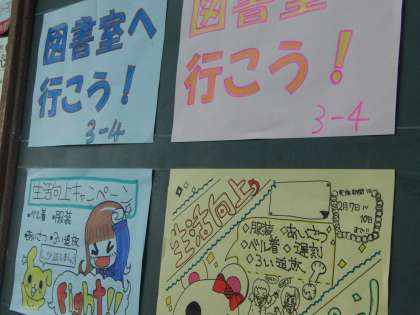 図書室へ
行こう!
3-4
図書室
行こう!
3-4
生活向上キャンペーン
•ベル着 •服装
•あいさつ •3い追放
Fight!!
生活向上
◇服装 ◇あいさつ
◇ベル着 ◇遅刻
◇3い追放
実施期間
12月7日〜
10日
まで!!